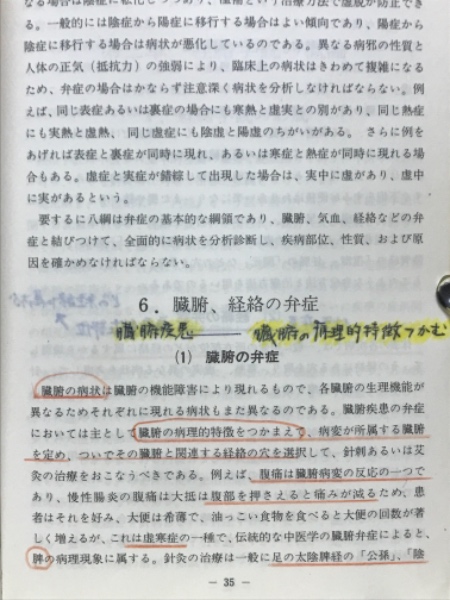 なる場合は陰症に転化しつつあり、
。一般的には陰症から陽症に移行する場合はよい傾向であり、陽症から
陰症に移行する場合は病状が悪化しているのである。異なる病邪の性質と
人体の正気（抵抗力）の強弱により、臨床上の病状はきわめて複雑になる
ため、弁症の場合はかならず注意深く病状を分析しなければならない。例
えば、同じ表症あるいは裏症の場合にも寒熱と虚実との別があり、同じ熱症
にも実熱と虚熱、同じ虚症にも陰虚と陽虚のちがいがある。さらに例を
あげれば表症と裏症が同時に現れ、あるいは寒症と熱症が同時に現れる場
合もある。虚症と実症が錯綜して出現した場合は、実中に虚があり、虚中
に実があるという。
要するに八綱は弁症の基本的な綱領であり、臓腑、気血、経絡などの弁
症と結びつけて、全面的に病状を分析診断し、疾病部位、性質、および原
因を確かめなければならない。
6．臓腑、経絡の弁症
臓腑疾患 ―― 臓腑の病理的特徴つかむ
(1) 臓腑の弁症
臓腑の病状は臓腑の機能障害により現れるもので、各臓腑の生理機能が
異なるためそれぞれに現れる病状もまた異なるのである。臓腑疾患の弁症
においては主として臓腑の病理的特徴をつかまえて、病変が所属する臓腑
を定め、ついでその臓腑と関連する経絡の穴を選択して、針刺あるいは艾
灸の治療をおこなうべきである。例えば、腹痛は臓腑病変の反応の一つで
あり、慢性腸炎の腹痛は大抵は腹部を押さえると痛みが減るため、患
者はそれを好み、大便は希薄で、油っこい食物を食べると大便の回数が著
しく増えるが、これは虚寒症の一種で、伝統的な中医学の臓腑弁症によると、
脾の病理現象に属する。針灸の治療は一般に足の太陰脾経の「公孫」、「陰
― 35 ―